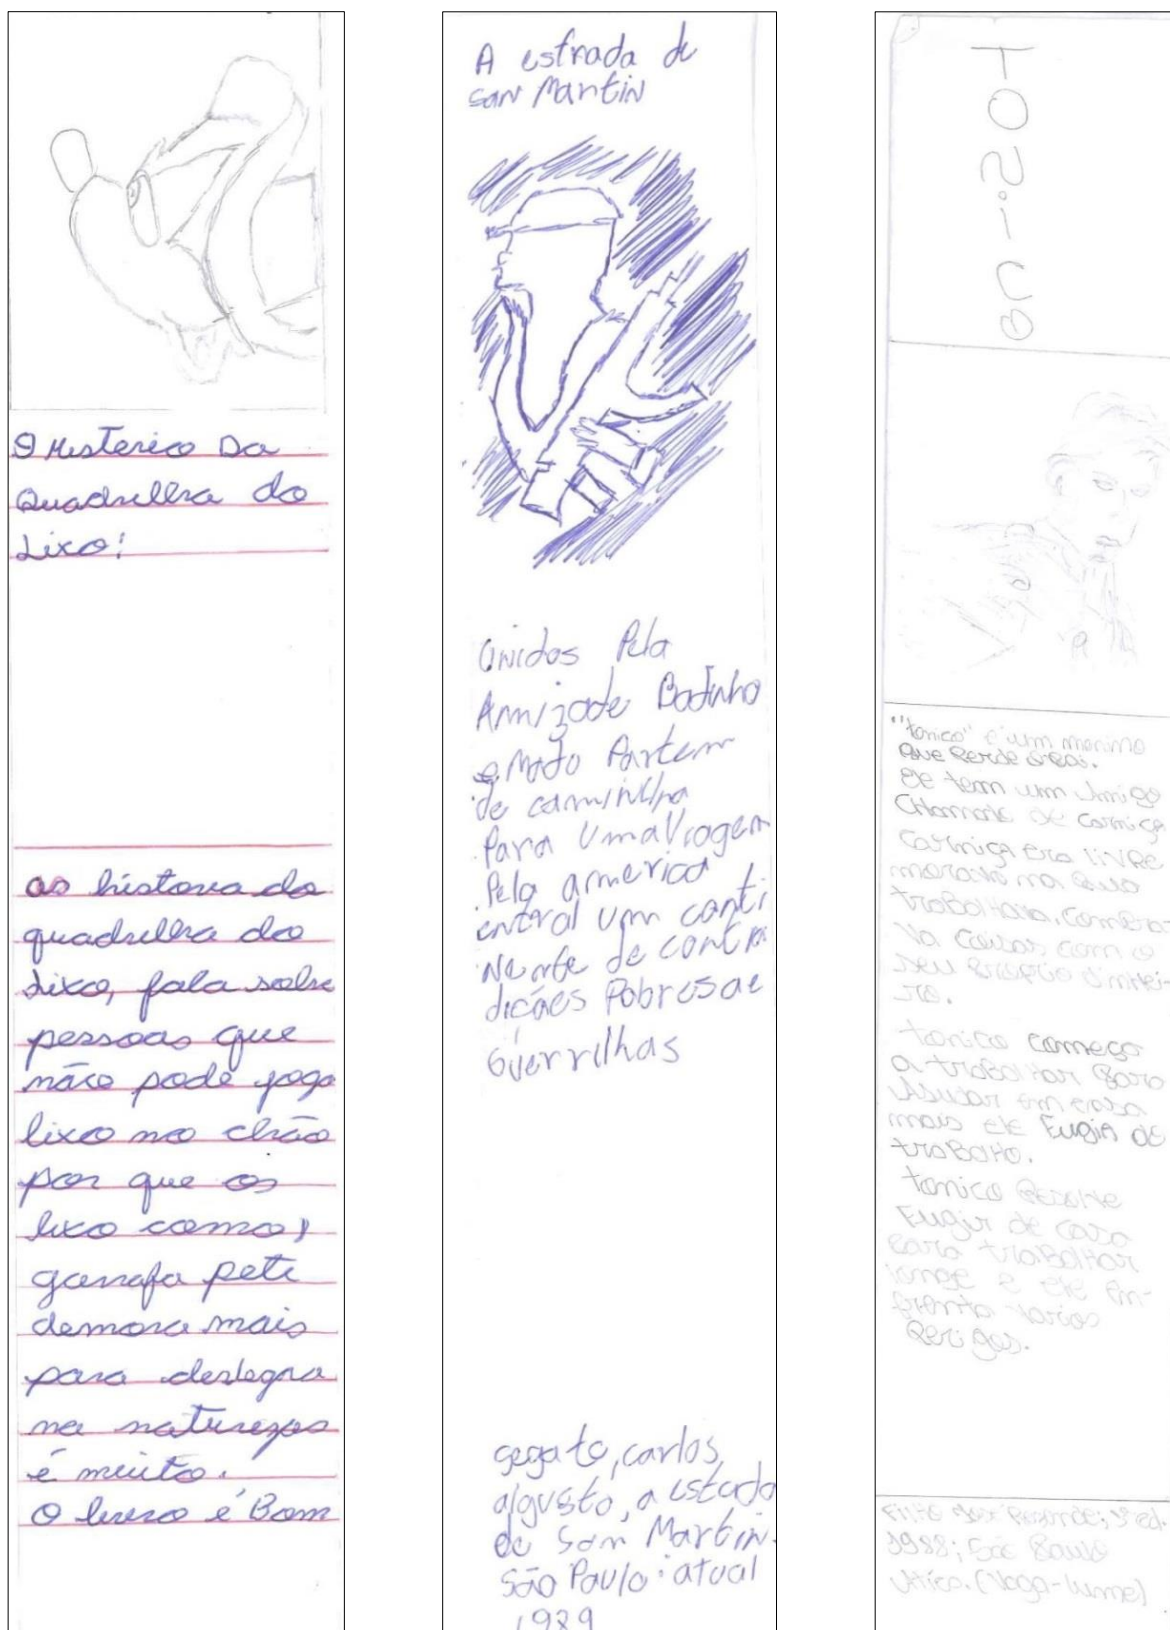 O Misterio Da
Quadrilha do
Lixo:
as historia da
quadrilha do
Lixo, fala sobre
pessoas que
não pode joga
lixo no chão
por que os
lixo como,
garrafa pete
demora mais
para deslegra
na natureza
é muito.
O livro é Bom
A estrada de
San Martin
Unidos Pela
Amizade Badinho
e Mato Partem
de caminhha
Para Uma Viagem
Pela america
entral um conti
Nente de contra
dições Pobresae
Guerrilhas
segato, carlos,
algusto, a estarda
de San Martin.
São Paulo: atual
1989
"tonico" é um menino
que Perde o Pai.
Ele tem um Amigo
Chamado de Carniça
Carniça era LIVRE
morava na Rua
trabalhava, compra
Va Coisas com o
seu Próprio dinhei-
ro.
tonico começo
a trabalhar Para
Ajudar em casa
mais ele Fugia do
trabalho.
tonico Resolve
Fugir de casa
Para trabalhar
longe e ele en-
frenta varios
Perigos.
José Rezende; ed.
1988; São Paulo
Ática. (Vaga-lume)